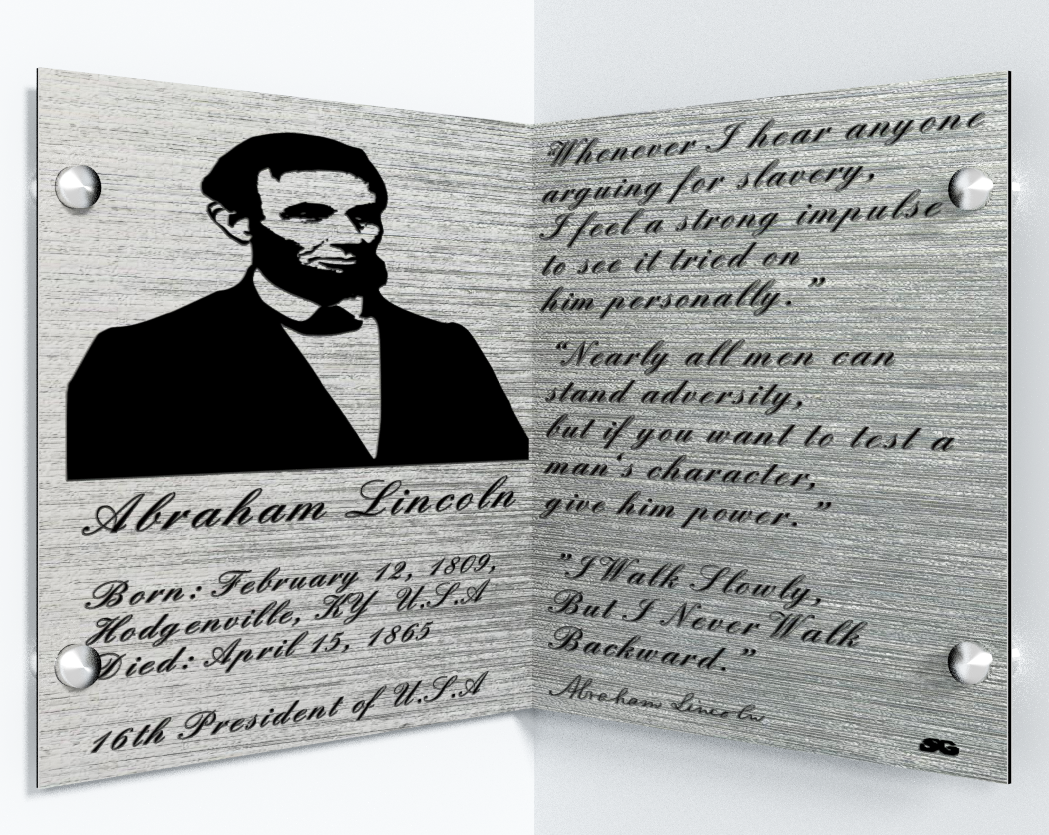 Abraham Lincoln
Born: February 12, 1809,
Hodgenville, KY U.S.A
Died: April 15, 1865
16th President of U.S.A
"Whenever I hear anyone
arguing for slavery,
I feel a strong impulse
to see it tried on
him personally."
"Nearly all men can
stand adversity,
but if you want to test a
man's character,
give him power."
"I Walk Slowly,
But I Never Walk
Backward."
Abraham Lincoln
SG